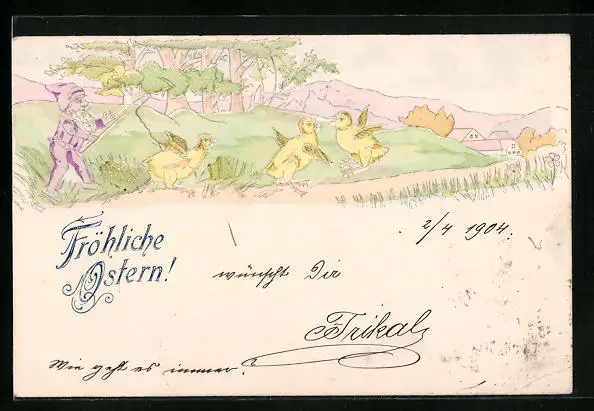 Fröhliche
Ostern!
2/4 1904.
wünscht Dir
Trikal
Wie geht es immer?